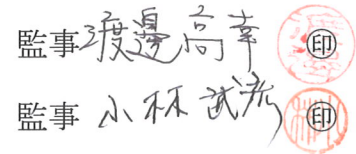 監事 渡邊高幸 ㊞
監事 小林武彦 ㊞